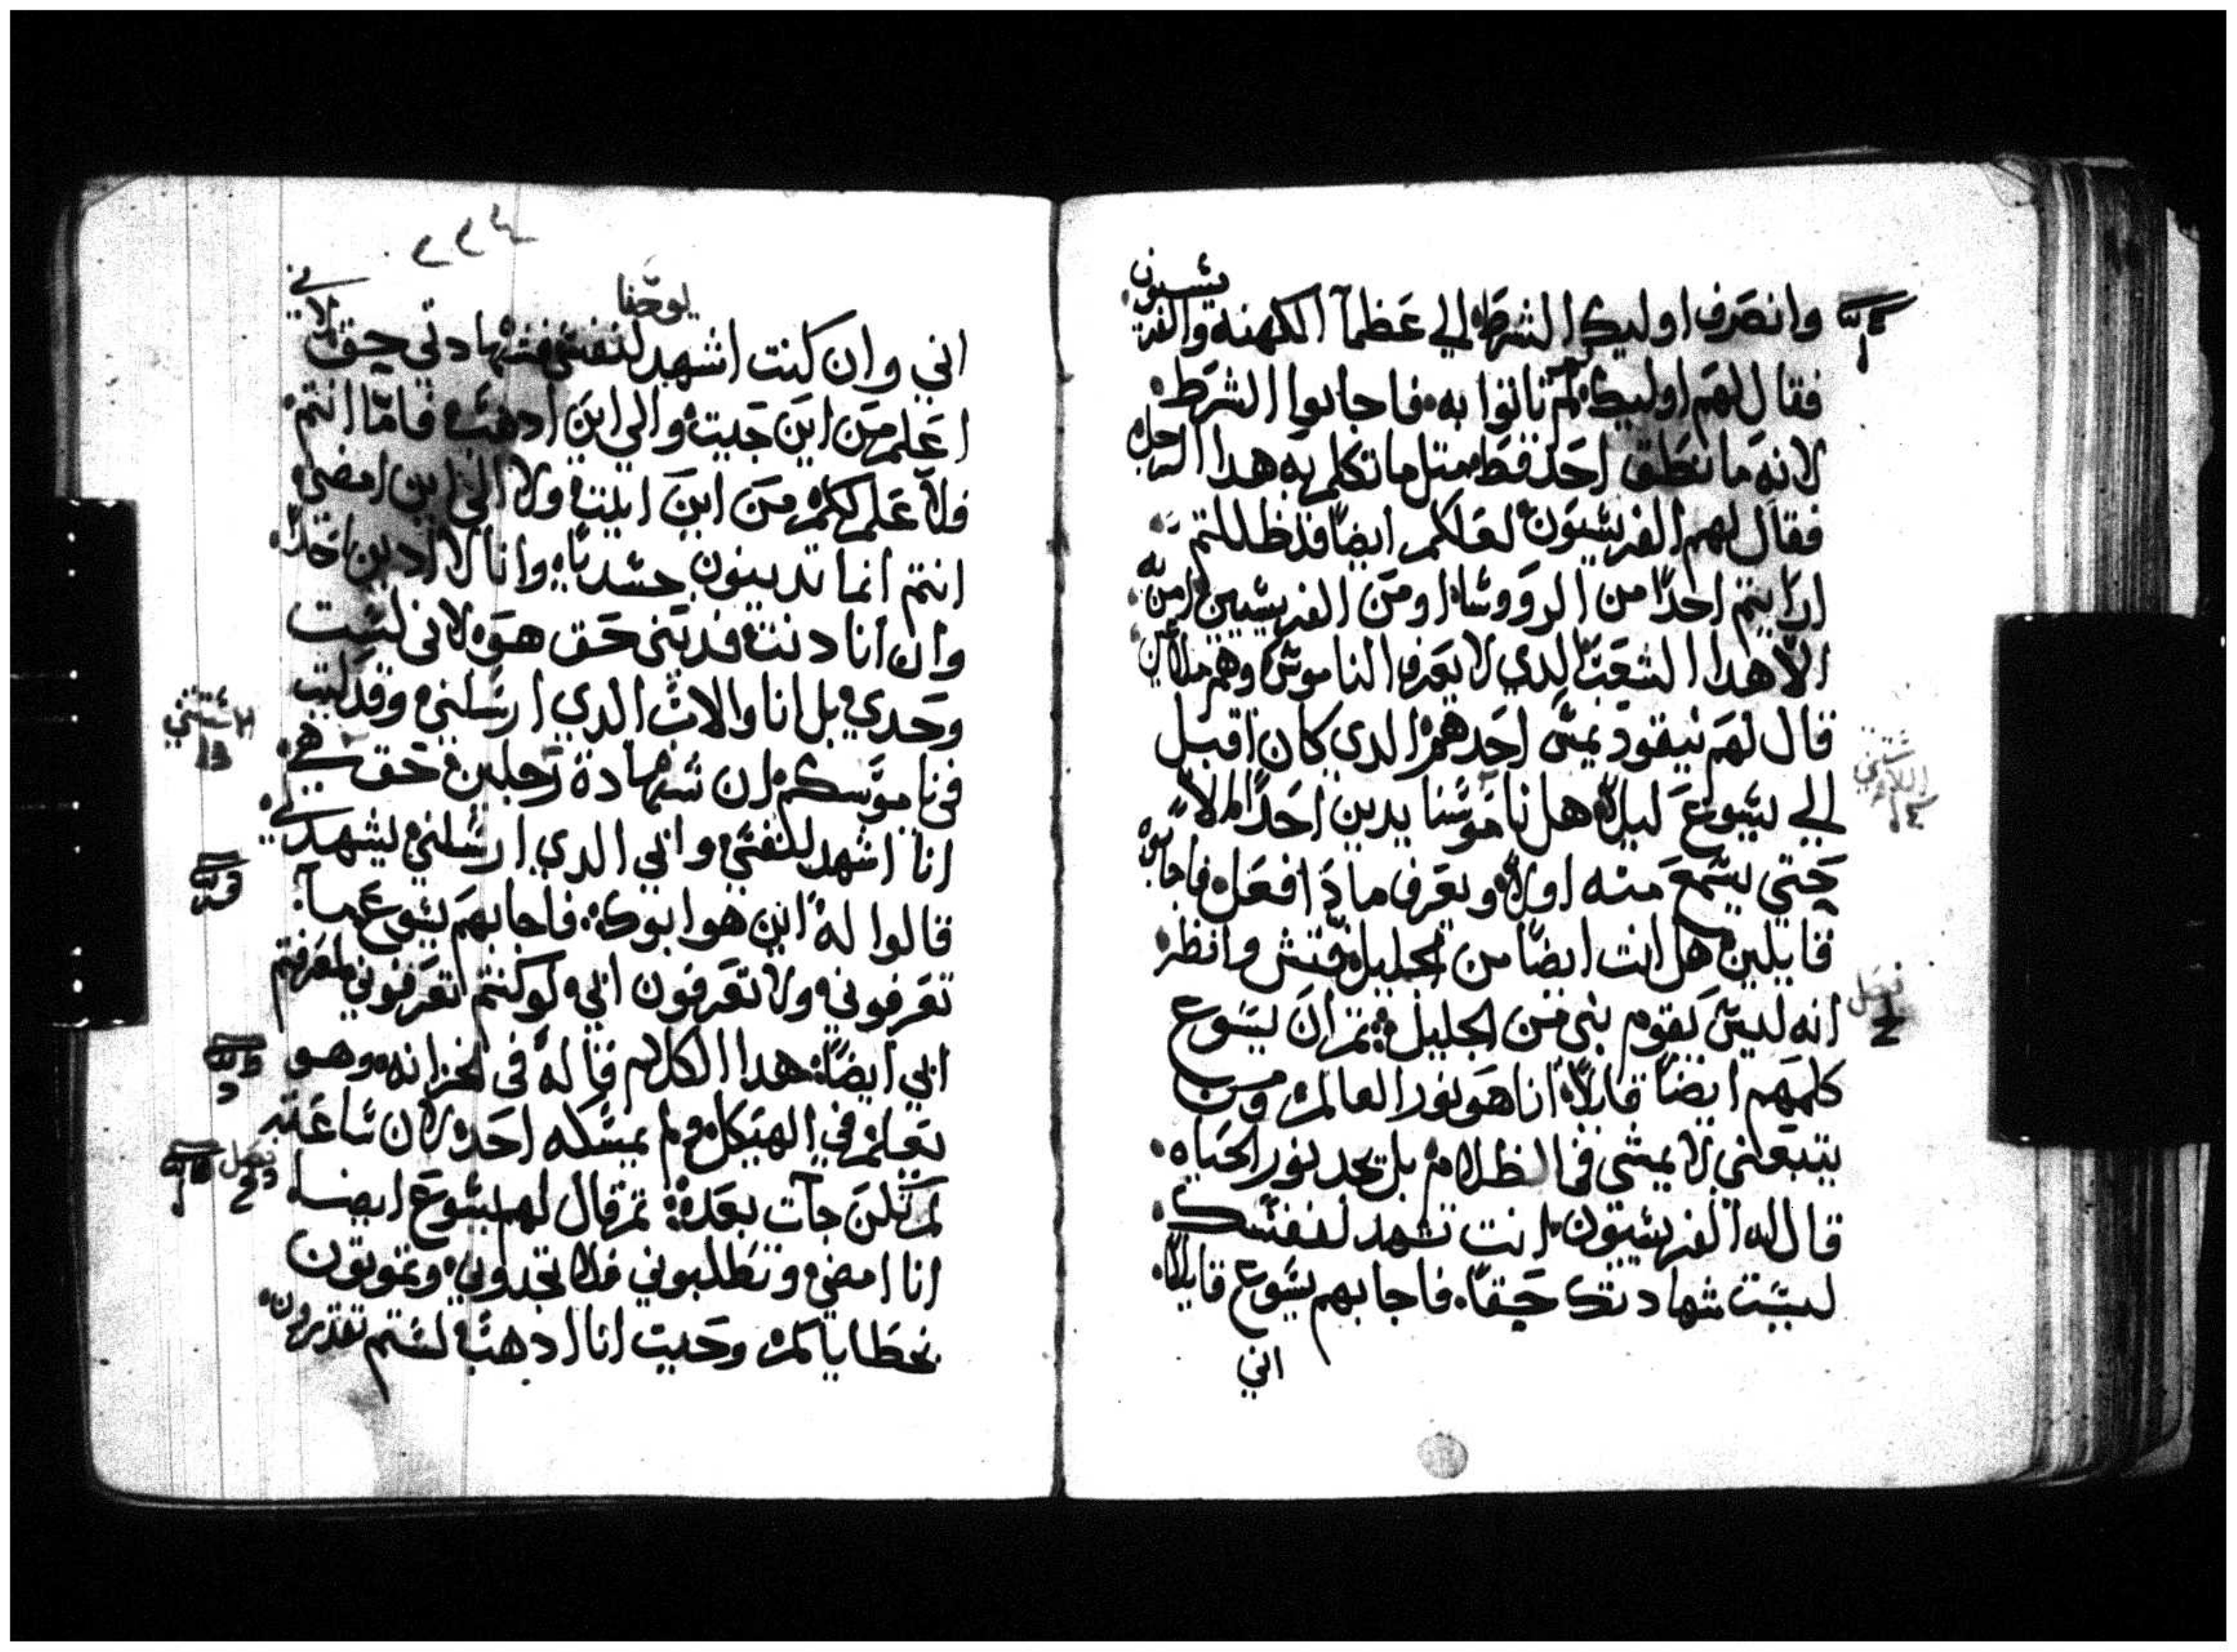 وانصرف اوليك الشرطه الي عظمآ الكهنه والفريسيون
فقال لهم اوليك لم تاتوا به فاجابوا الشرط
لانه ما نطق احد قط متل ما تكلم به هدا الرجل
فقال لهم الفريسيون لعلكم ايضًا قد ظللتم
ارايتم احدًا من الروَوسا او من الفريسيين امن به
الا هدا الشعب الدي لا يعرف الناموس وهم ملاعين
قال لهم نيقوديمس احدهم الدي كان اقبل
الي يسوع ليلاً هل ناموسنا يدين احدًا ام لا
حتي يسمع منه اولاً ويعرف مادا فعل فاجابوه
قايلين هل انت ايضًا من الجليل فتش وانظر
انه ليس يقوم نبى من الجليل تم ان يسوع
كلمهم ايضًا قايلاً انا هو نور العالم ومن
يتبعنى لا يمشى فى الظلام بل يجد نور الحياه
قال له الفريسيون انت تشهد لنفسك
ليست شهادتك حقًا فاجابهم يسوع قايلاً
اني
٢٢٤
يوحنا
اني وان كنت اشهد لنفسى فشهادتى حق لاني
اعلم من اين جيت والي اين ادهب فامّا انتم
فلا علم لكم من اين اتيت ولا الي اين امضي
انتم انما تدينون جسديًا وانا لا ادين احدًا
وان انا دنت فدينى حق هو لانى لست
وحدي بل انا والاب الدي ارسلني وقد كتب
فى ناموسكم ان شهادة رجلين حق هي
انا اشهد لنفسي وابي الدي ارسلني يشهد لي
قالوا له اين هو ابوك فاجابهم يسوع ما
تعرفوني ولا تعرفون ابي لو كنتم تعرفوني لعرفتم
ابي ايضًا هدا الكلام قاله فى الخزانه وهو
يعلم في الهيكل ولم يمسكه احد لان ساعته
لم تكن جآت بعد تم قال لهم يسوع ايضا
انا امضي وتطلبوني فلا تجدوني وتموتون
بخطاياكم وحيت انا ادهب لستم تقدرون
فصل
فصل